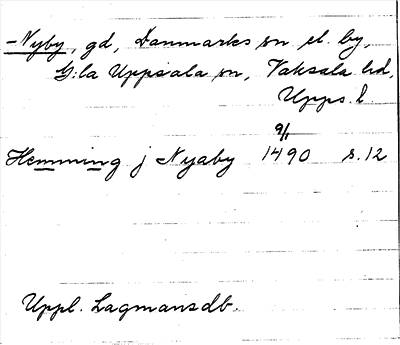 -Nyby, gd, Danmarks sn el. by,
G:la Uppsala sn, Vaksala hd,
Upps. l.
9/1
Hemming j Nyaby 1490 s. 12
Uppl. Lagmansdb.